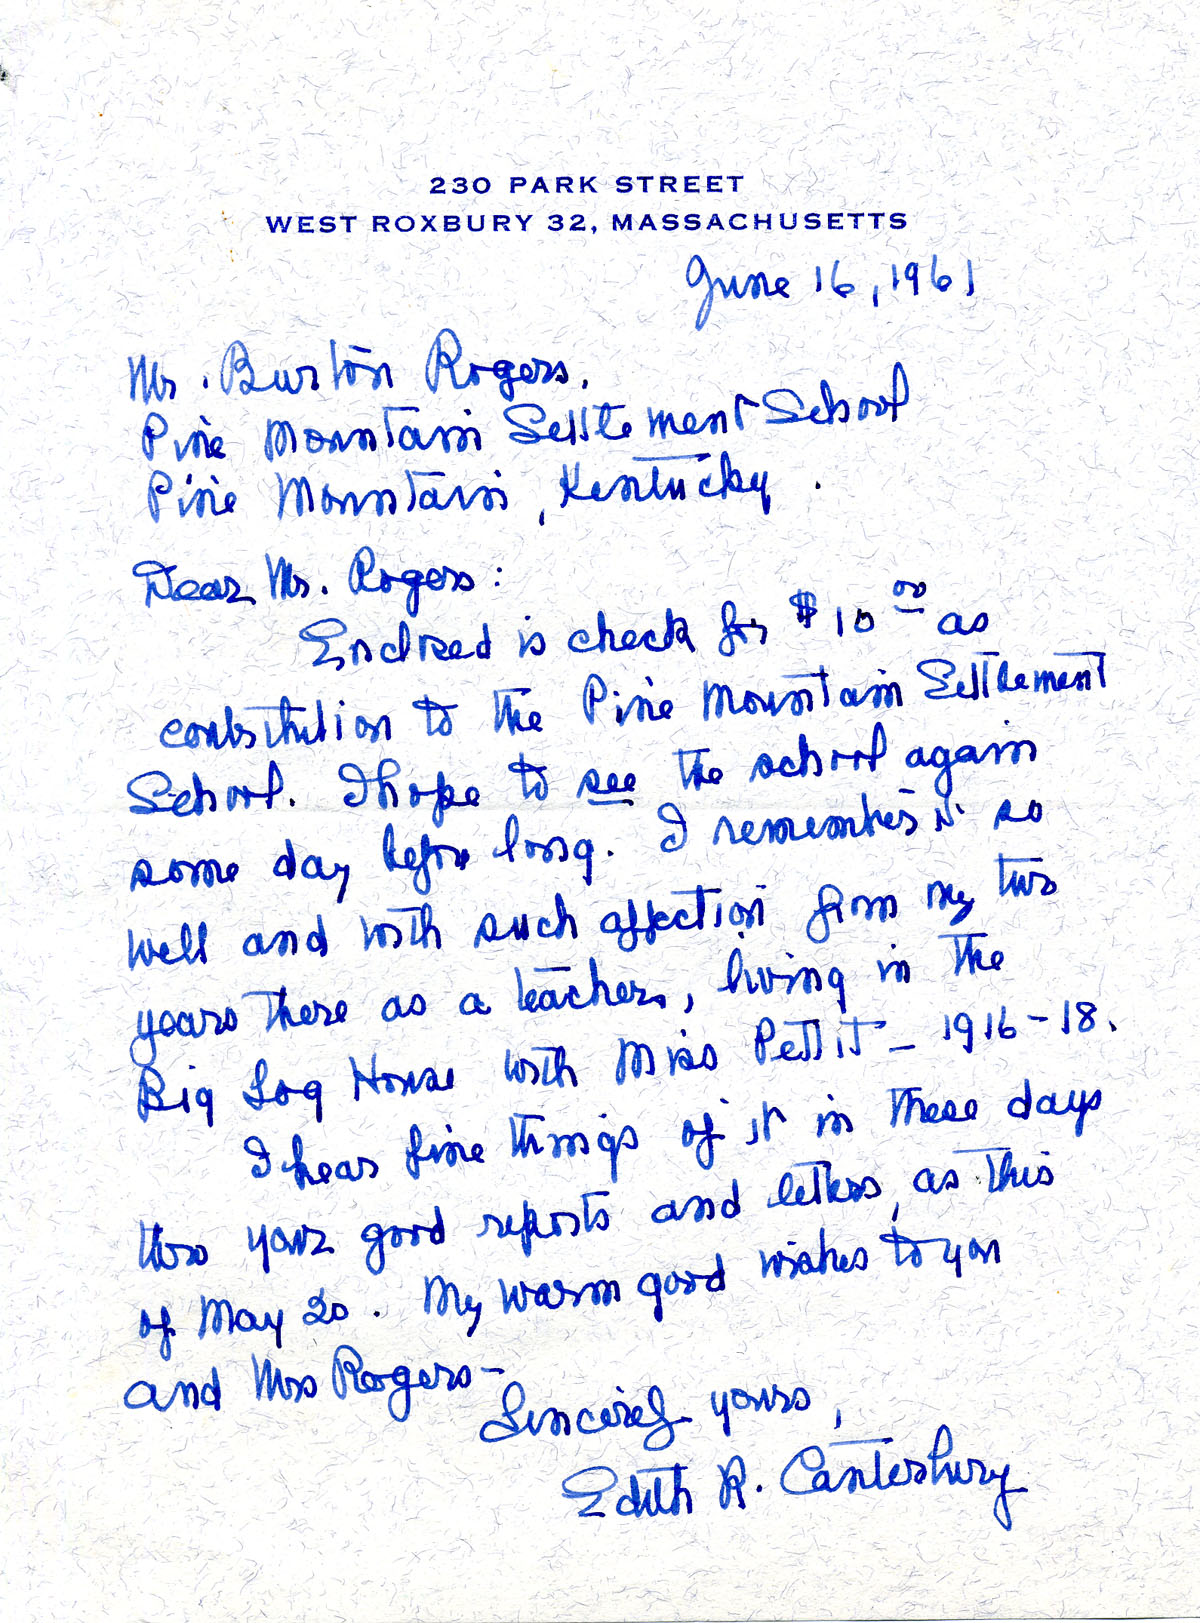 230 PARK STREET
WEST ROXBURY 32, MASSACHUSETTS
June 16, 1961
Mr. Burton Rogers,
Pine Mountain Settlement School
Pine Mountain, Kentucky.
Dear Mr. Rogers:
Enclosed is check for $10.00 as
contribution to the Pine Mountain Settlement
School. I hope to see the school again
some day before long. I remember it so
well and with such affection from my two
years there as a teacher, living in the
Big Log House with Miss Pettit - 1916-18.
I hear fine things of it in these days
thro your good reports and letters, as this
of May 20. My warm good wishes to you
and Mrs Rogers -
Sincerely yours,
Edith R. Canterbury